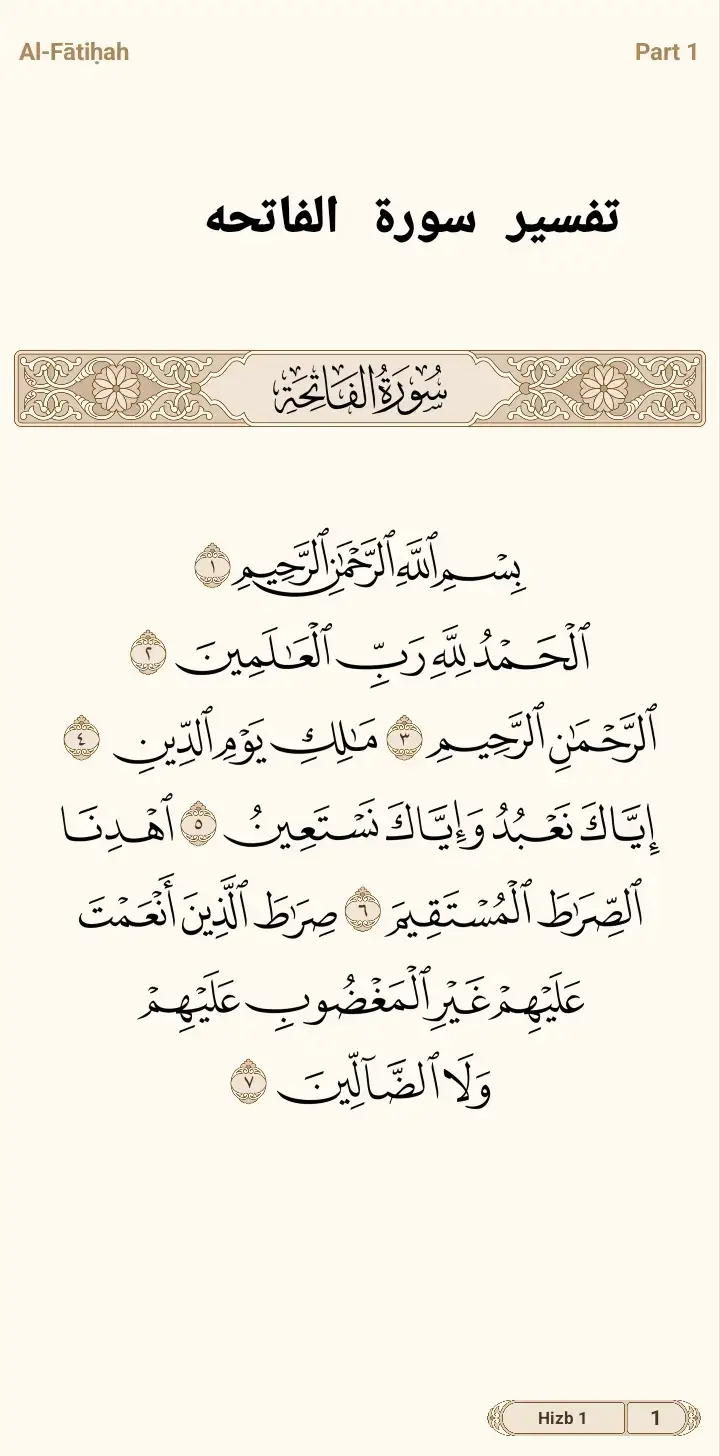 Al-Fātiḥah
Part 1
تفسير سورة الفاتحه
سُورَةُ الفَاتِحَةِ
بِسْمِ ٱللَّهِ ٱلرَّحْمَٰنِ ٱلرَّحِيمِ ١
ٱلْحَمْدُ لِلَّهِ رَبِّ ٱلْعَٰلَمِينَ ٢
ٱلرَّحْمَٰنِ ٱلرَّحِيمِ ٣ مَٰلِكِ يَوْمِ ٱلدِّينِ ٤
إِيَّاكَ نَعْبُدُ وَإِيَّاكَ نَسْتَعِينُ ٥ ٱهْدِنَا
ٱلصِّرَٰطَ ٱلْمُسْتَقِيمَ ٦ صِرَٰطَ ٱلَّذِينَ أَنْعَمْتَ
عَلَيْهِمْ غَيْرِ ٱلْمَغْضُوبِ عَلَيْهِمْ
وَلَا ٱلضَّآلِّينَ ٧
Hizb 1
1